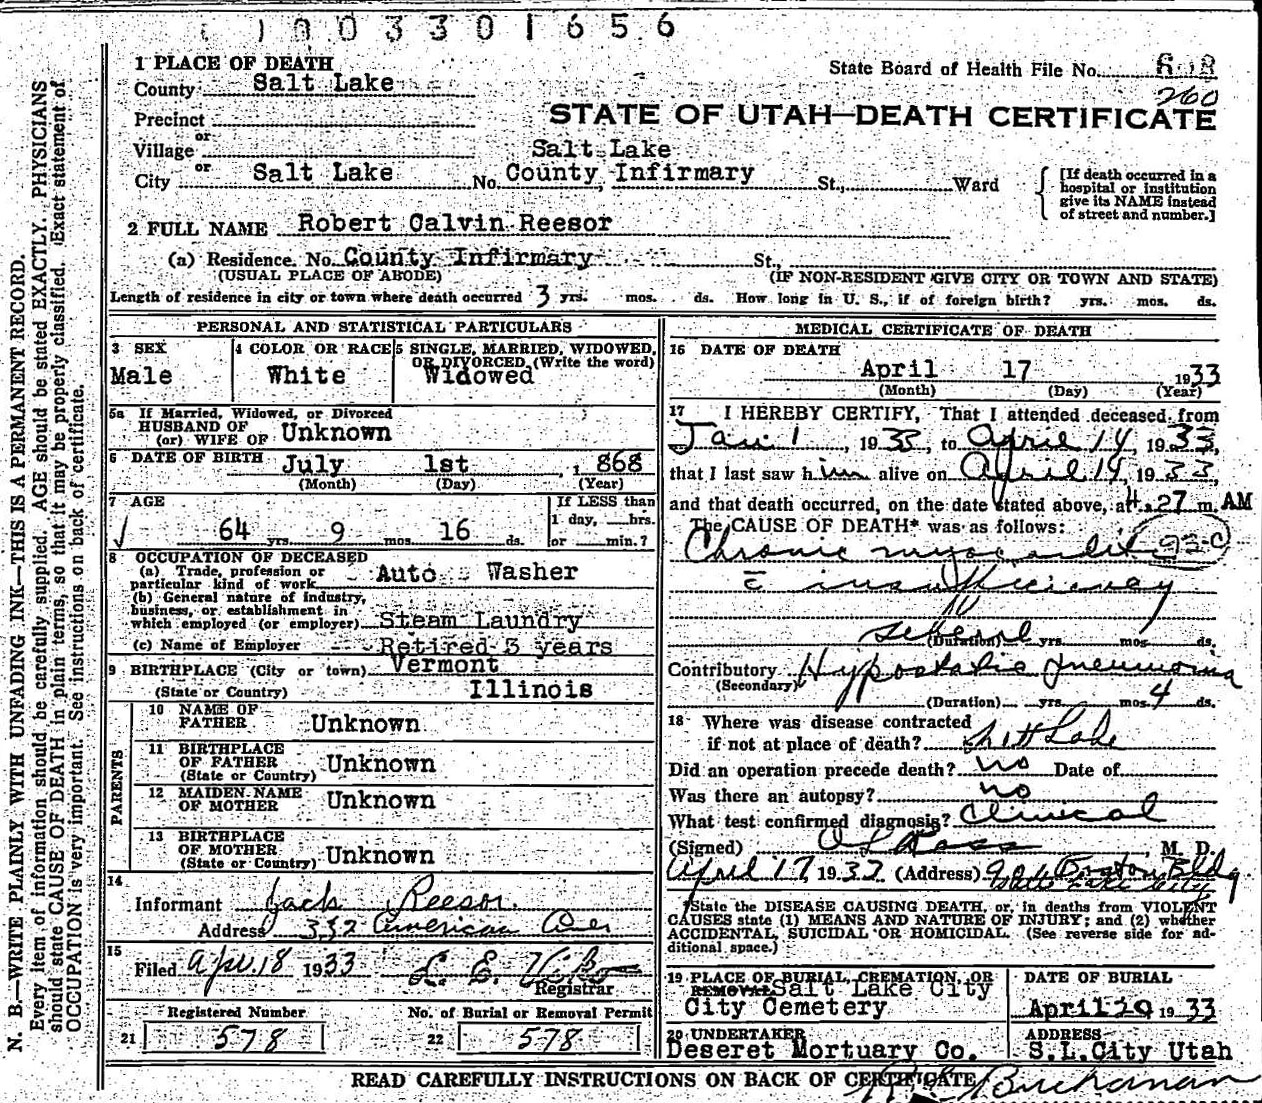 1003301656
1 PLACE OF DEATH
State Board of Health File No.
260
County Salt Lake
STATE OF UTAH—DEATH CERTIFICATE
Precinct
or
Village
Salt Lake
or
City Salt Lake No. County Infirmary St., Ward
[If death occurred in a
hospital or institution
give its NAME instead
of street and number.]
2 FULL NAME Robert Calvin Reesor
(a) Residence. No. County Infirmary St.,
(USUAL PLACE OF ABODE) (IF NON-RESIDENT GIVE CITY OR TOWN AND STATE)
Length of residence in city or town where death occurred 3 yrs. mos. ds. How long in U. S., if of foreign birth? yrs. mos. ds.
PERSONAL AND STATISTICAL PARTICULARS
3 SEX
Male
4 COLOR OR RACE
White
5 SINGLE, MARRIED, WIDOWED,
OR DIVORCED (Write the word)
Widowed
5a If Married, Widowed, or Divorced
HUSBAND OF
(or) WIFE OF Unknown
6 DATE OF BIRTH July 1st, 1868
(Month) (Day) (Year)
7 AGE
64 yrs. 9 mos. 16 ds.
If LESS than
1 day, hrs.
or min.?
8 OCCUPATION OF DECEASED
(a) Trade, profession or
particular kind of work Auto Washer
(b) General nature of industry,
business, or establishment in
which employed (or employer) Steam Laundry
(c) Name of Employer Retired 3 years
9 BIRTHPLACE (City or town) Vermont
(State or Country) Illinois
PARENTS
10 NAME OF
FATHER Unknown
11 BIRTHPLACE
OF FATHER Unknown
(State or Country)
12 MAIDEN NAME
OF MOTHER Unknown
13 BIRTHPLACE
OF MOTHER
(State or Country) Unknown
14
Informant Jack Reesor.
Address 332 American Ave
15
Filed Apr. 18 1933
Registrar
Registered Number
21 578
No. of Burial or Removal Permit
22 578
MEDICAL CERTIFICATE OF DEATH
16 DATE OF DEATH
April 17 1933
(Month) (Day) (Year)
17 I HEREBY CERTIFY, That I attended deceased from
Jan. 1, 1933, to April 14, 1933,
that I last saw him alive on April 14, 1933,
and that death occurred, on the date stated above, at 4:27 m. AM
The CAUSE OF DEATH* was as follows:
Chronic myocarditis 93-C
c̄ insufficiency
several (Duration) yrs. mos. ds.
Contributory Hypostatic Pneumonia
(Secondary)
(Duration) yrs. mos. 4 ds.
18 Where was disease contracted
if not at place of death? Salt Lake
Did an operation precede death? no Date of
Was there an autopsy? no
What test confirmed diagnosis? Clinical
(Signed) M. D.
April 17, 1933 (Address) Boston Bldg
Salt Lake City
*State the DISEASE CAUSING DEATH, or, in deaths from VIOLENT
CAUSES state (1) MEANS AND NATURE OF INJURY; and (2) whether
ACCIDENTAL, SUICIDAL OR HOMICIDAL. (See reverse side for ad-
ditional space.)
19 PLACE OF BURIAL, CREMATION, OR
REMOVAL Salt Lake City
City Cemetery
DATE OF BURIAL
April 20 1933
20 UNDERTAKER
Deseret Mortuary Co.
ADDRESS
S.L.City Utah
READ CAREFULLY INSTRUCTIONS ON BACK OF CERTIFICATE
Buchanan
N. B.—WRITE PLAINLY WITH UNFADING INK—THIS IS A PERMANENT RECORD.
Every item of information should be carefully supplied. AGE should be stated EXACTLY. PHYSICIANS
should state CAUSE OF DEATH in plain terms, so that it may be properly classified. Exact statement of
OCCUPATION is very important. See instructions on back of certificate.